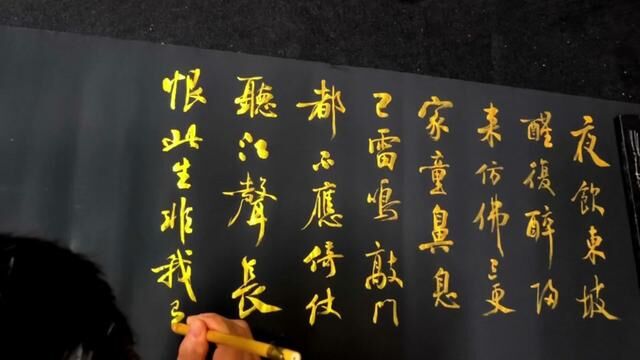 夜飲東坡
醒復醉歸
來仿佛三更
家童鼻息
已雷鳴敲門
都不應倚仗
聽江聲長
恨此生非我